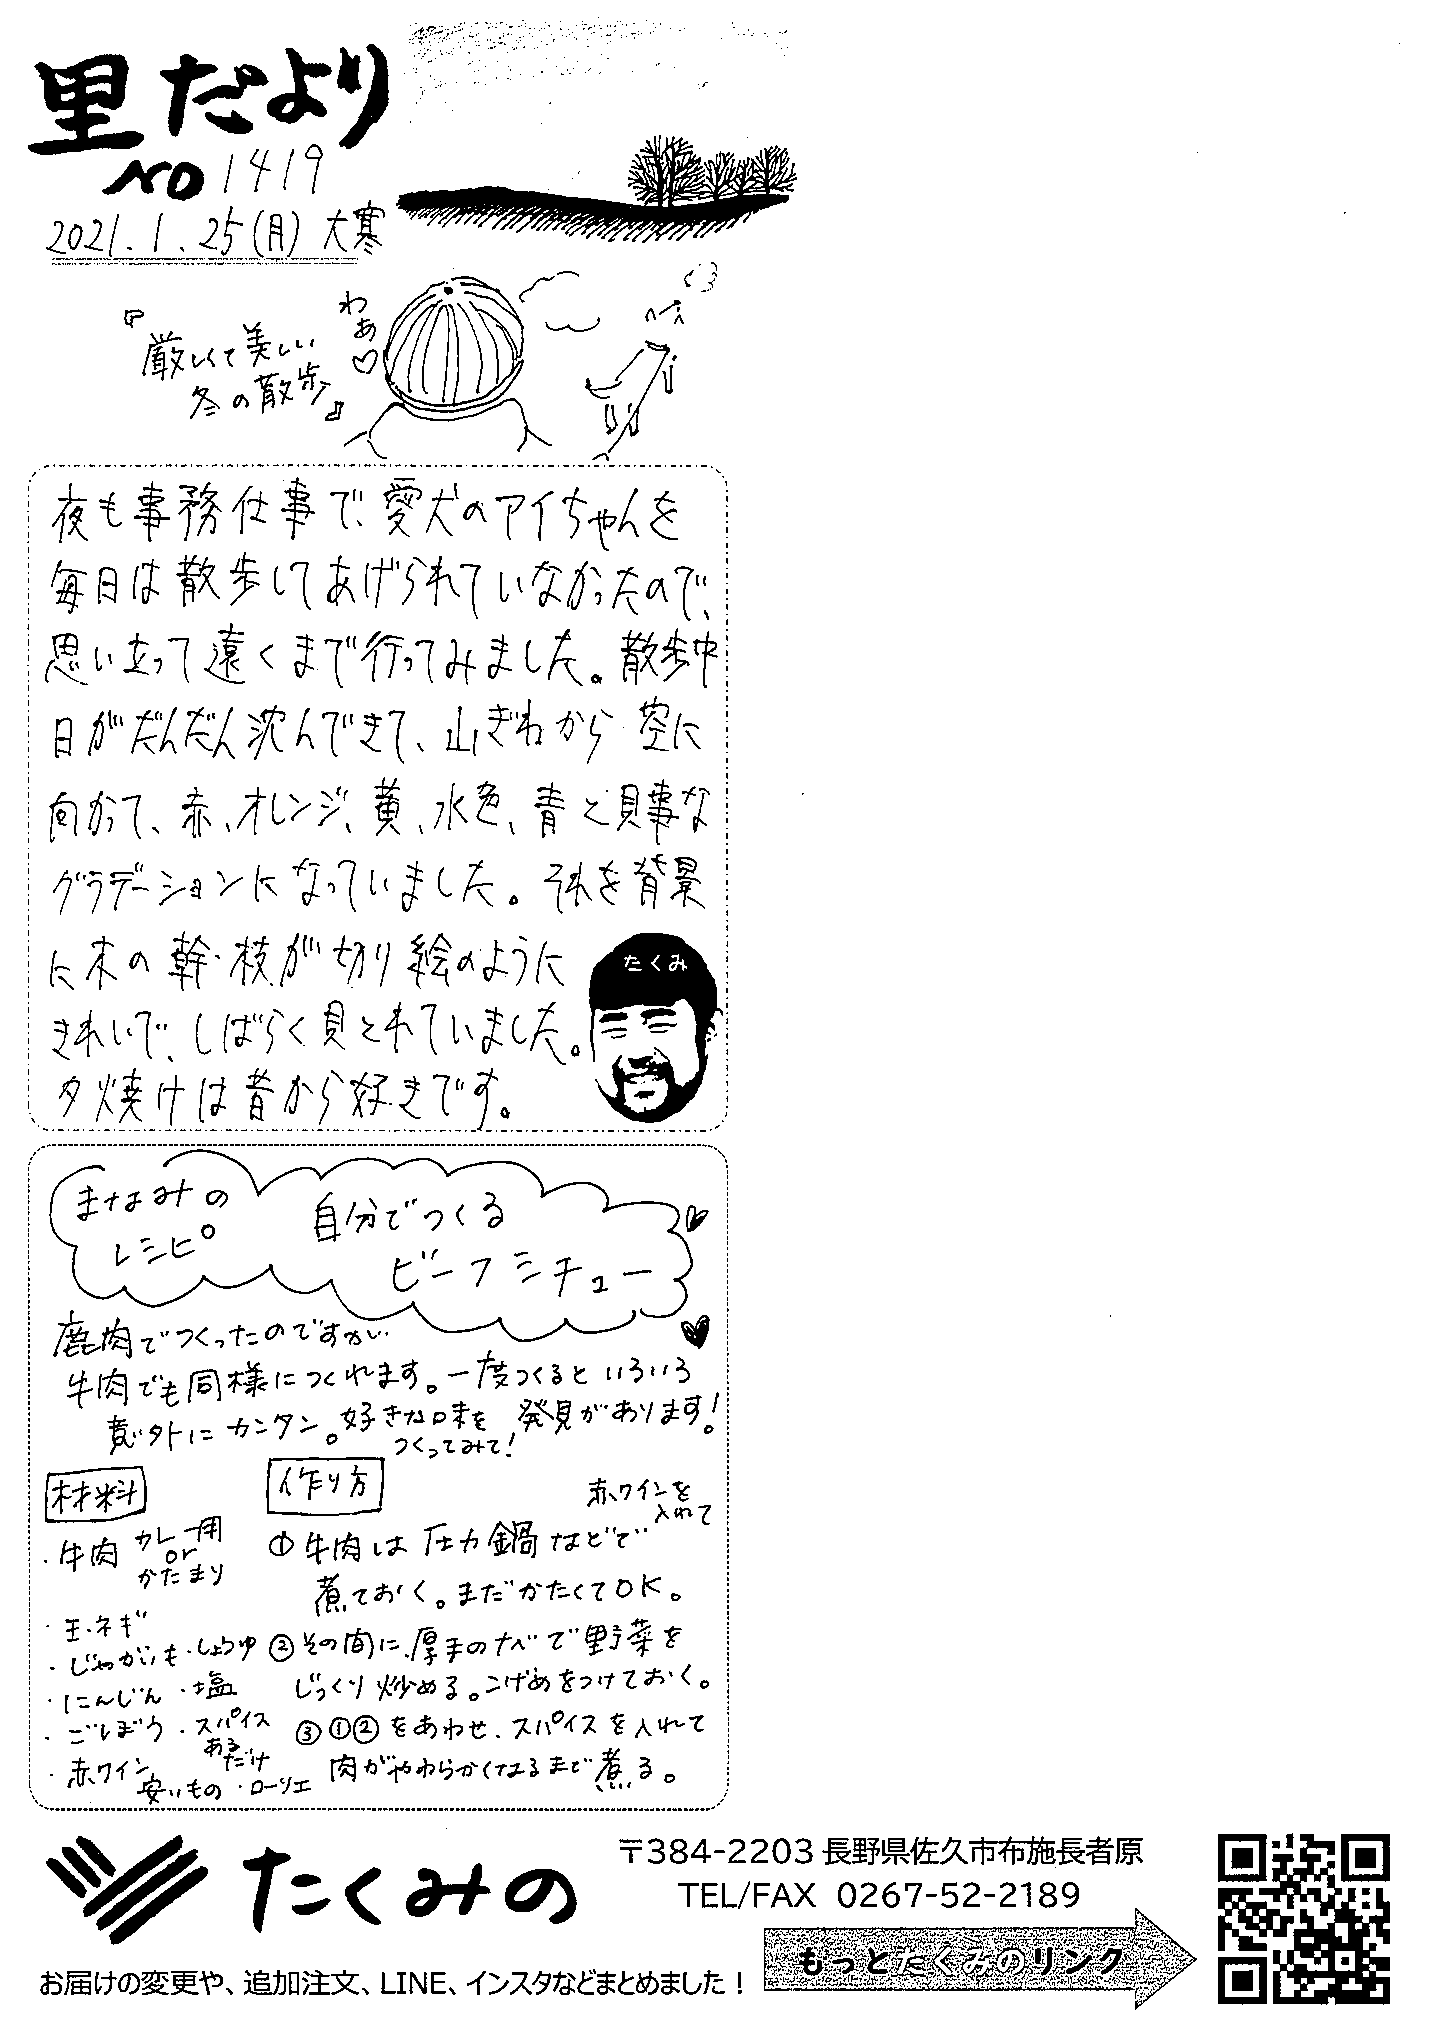 里だより
No 1419
2021.1.25(月) 大寒
『厳しくて美しい
冬の散歩』
わぁ♡
夜も事務仕事で、愛犬のアイちゃんを
毎日は散歩してあげられていなかったので、
思い立って遠くまで行ってみました。散歩中
日がだんだん沈んできて、山ぎわから空に
向かって、赤、オレンジ、黄、水色、青と見事な
グラデーションになっていました。それを背景
に木の幹・枝が切り絵のように
きれいで、しばらく見とれていました。
夕焼けは昔から好きです。
たくみ
まなみの
レシピ
自分でつくる
ビーフシチュー
鹿肉でつくったのですが、
牛肉でも同様につくれます。一度つくるといろいろ
発見があります!
意外にカンタン。好きな味を
つくってみて!
材料
・牛肉 カレー用
or
かたまり
・玉ネギ
・じゃがいも
・にんじん
・ごぼう
・赤ワイン
安いもの
・しょうゆ
・塩
・スパイス
あるだけ
・ローリエ
作り方
赤ワインを
入れて
①牛肉は圧力鍋などで
煮ておく。まだかたくてOK。
②その間に、厚手のナベで野菜を
じっくり炒める。こげめをつけておく。
③①②をあわせ、スパイスを入れて
肉がやわらかくなるまで煮る。
たくみの
〒384-2203 長野県佐久市布施長者原
TEL/FAX 0267-52-2189
もっとたくみのリンク
お届けの変更や、追加注文、LINE、インスタなどまとめました！